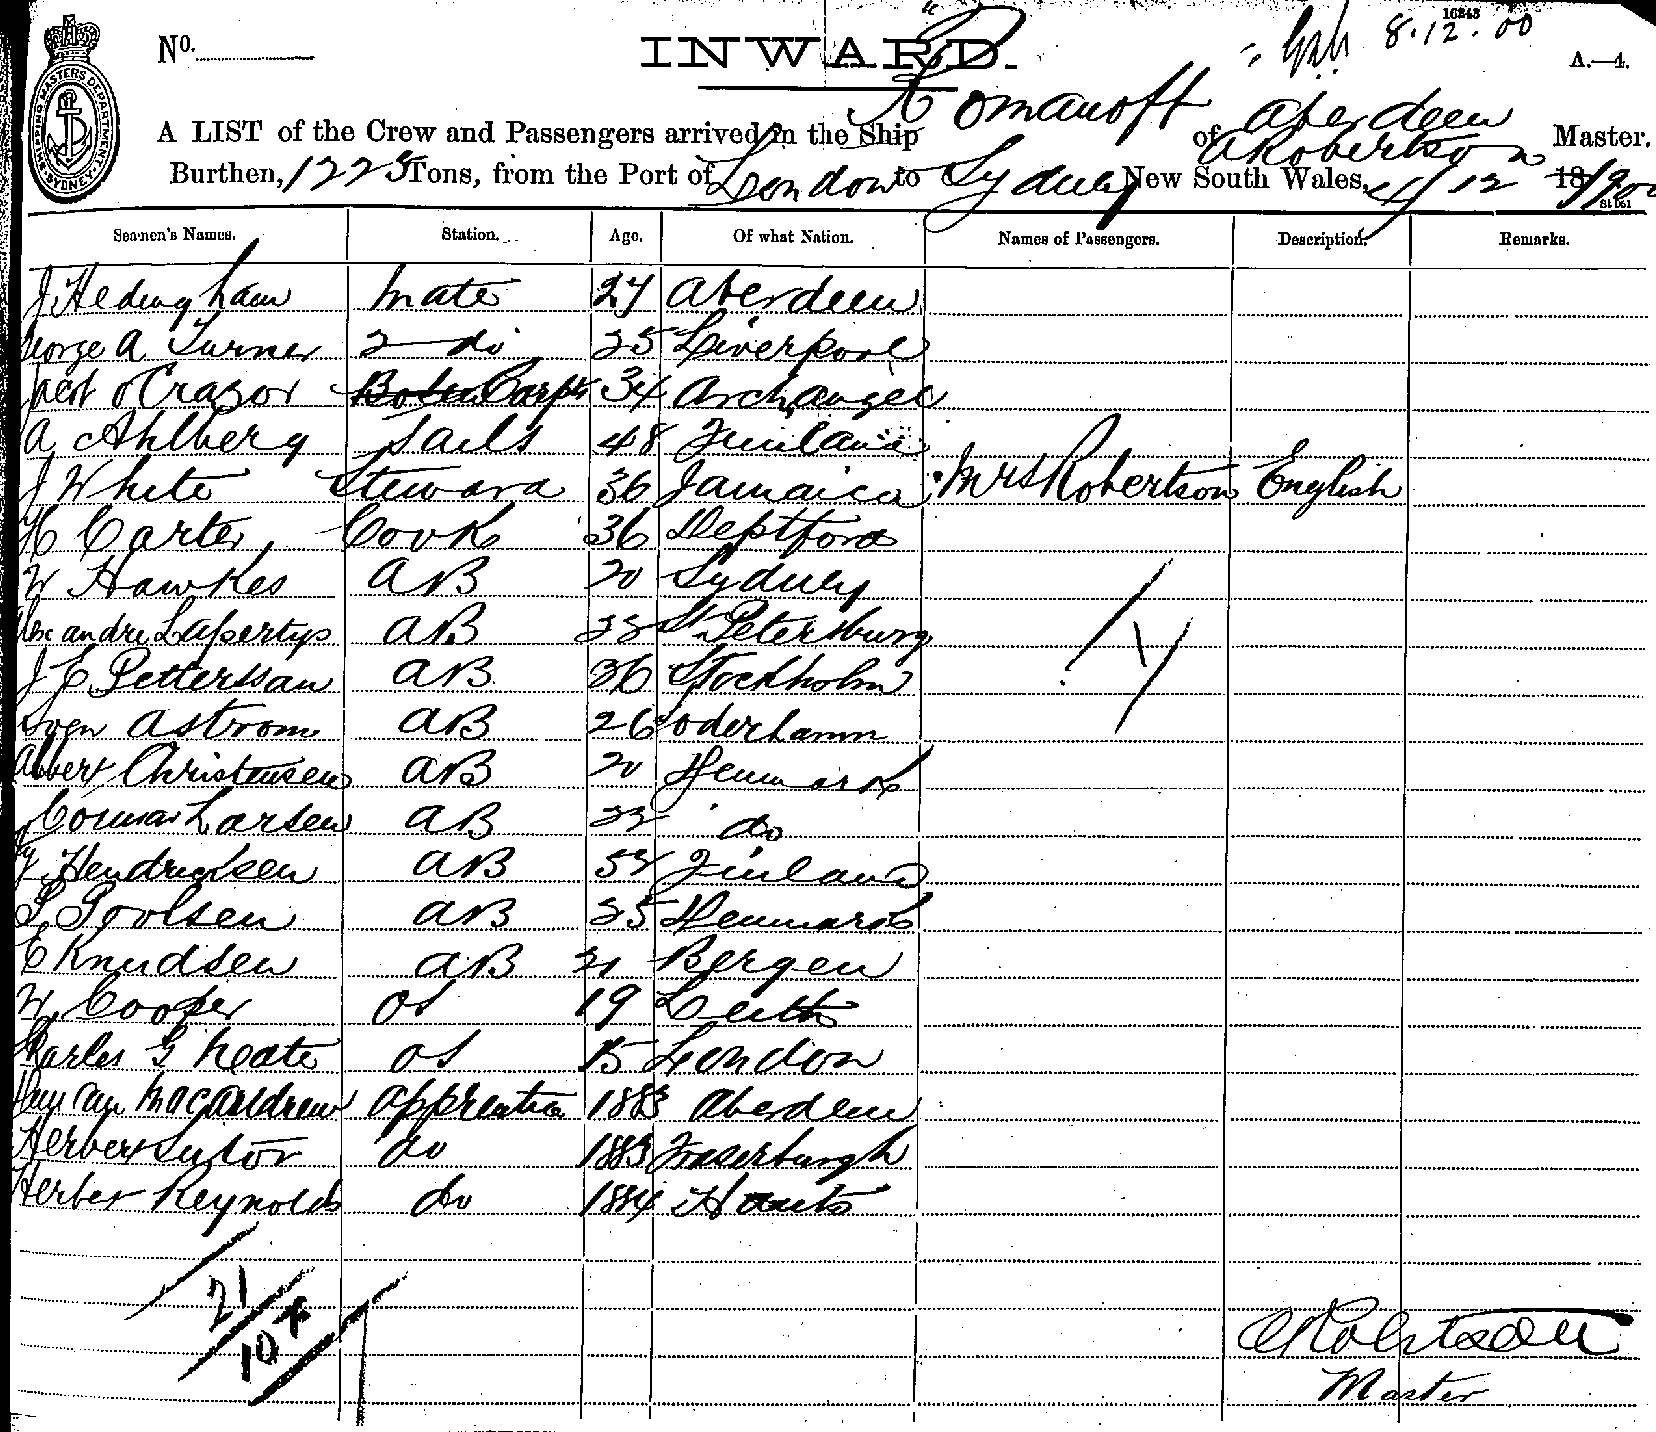 16243
8.12.00
No.
INWARD.
A.—4.
SHIPPING MASTERS DEPARTMENT SYDNEY
A LIST of the Crew and Passengers arrived in the Ship Romanoff of Aberdeen A Robertson Master.
Burthen, 1225 Tons, from the Port of London to Sydney New South Wales, 4/12 18/900
Seamen's Names. Station. Age. Of what Nation. Names of Passengers. Description. Remarks.
J. Hedingham Mate 27 Aberdeen
George A Turner 2 do 25 Liverpool
Carptr 34 Archangel
A Ahlberg Sails 48 Finland
J White Steward 36 Jamaica Mrs Robertson English
H Carter Cook 36 Deptford
W Hawkes AB 20 Sydney
Alexandre AB St Petersburg
J E Petterssan AB 36 Stockholm
Sven Astrom AB 26 Soderhamn
Albert Christensen AB 20 Denmark
Larsen AB do
Hendricksen AB Finland
AB 25 Denmark
C Knudsen AB 21 Bergen
W Cooper OS 19 Leith
Charles G Neate OS 15 London
Duncan MacAndrew apprentice 1883 Aberdeen
Herbert Sutor do 1883 Fraserburgh
Herber Reynolds do 1884 Hants
21
10
A Robertson
Master